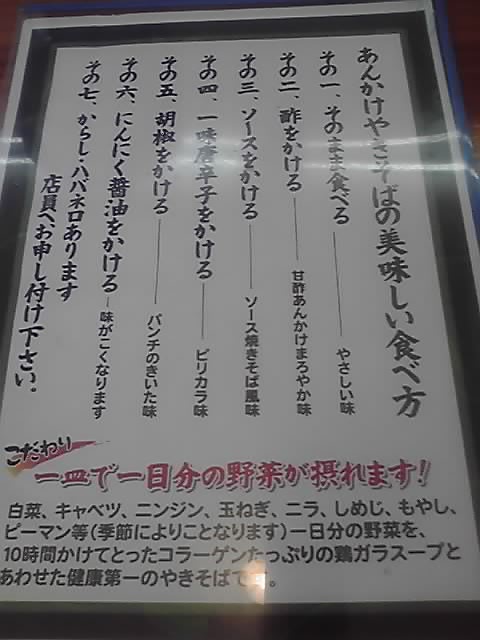 あんかけやきそばの美味しい食べ方
その一、そのまま食べる ― やさしい味
その二、酢をかける ― 甘酢あんかけまろやか味
その三、ソースをかける ― ソース焼きそば風味
その四、一味唐辛子をかける ― ピリカラ味
その五、胡椒をかける ― パンチのきいた味
その六、にんにく醤油をかける ― 味がこくなります
その七、からし・ハバネロあります
店員へお申し付け下さい。
こだわり
一皿で一日分の野菜が摂れます!
白菜、キャベツ、ニンジン、玉ねぎ、ニラ、しめじ、もやし、
ピーマン等(季節によりことなります)一日分の野菜を、
10時間かけてとったコラーゲンたっぷりの鶏ガラスープと
あわせた健康第一のやきそばです。